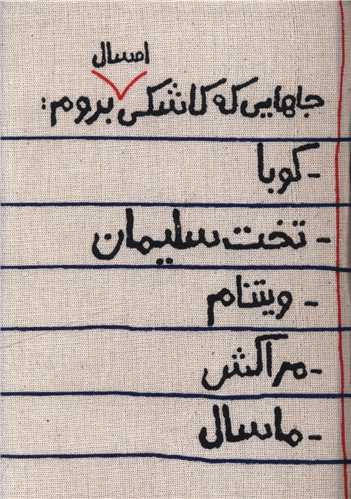 امسال
جاهایی که کاشکی بروم:
- کوبا
- تخت سلیمان
- ویتنام
- مراکش
- ماسال